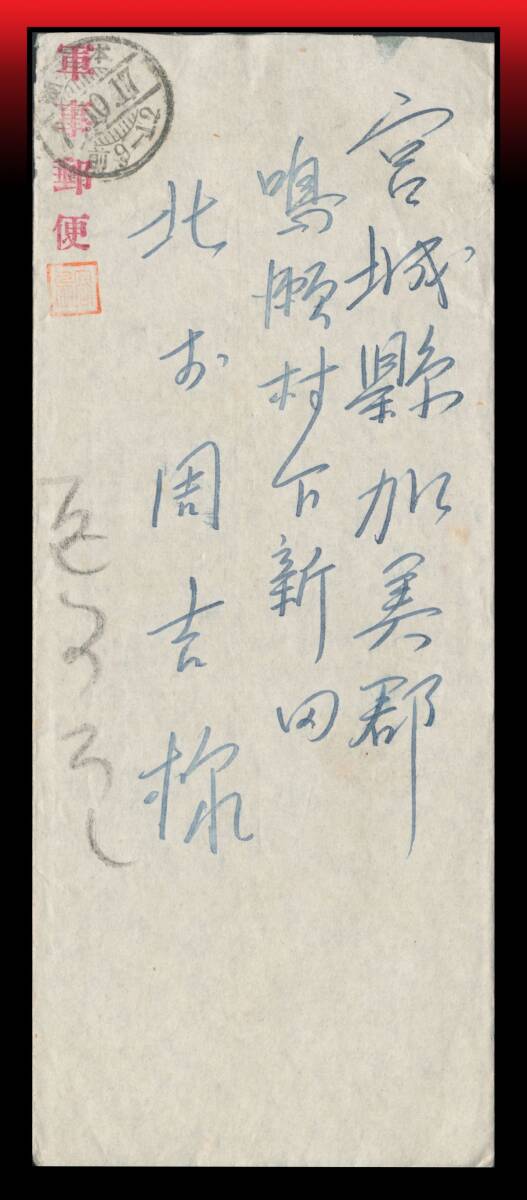 宮城縣加美郡
鳴瀬村下新田
北
周吉様
軍事郵便
10.17
前9-12